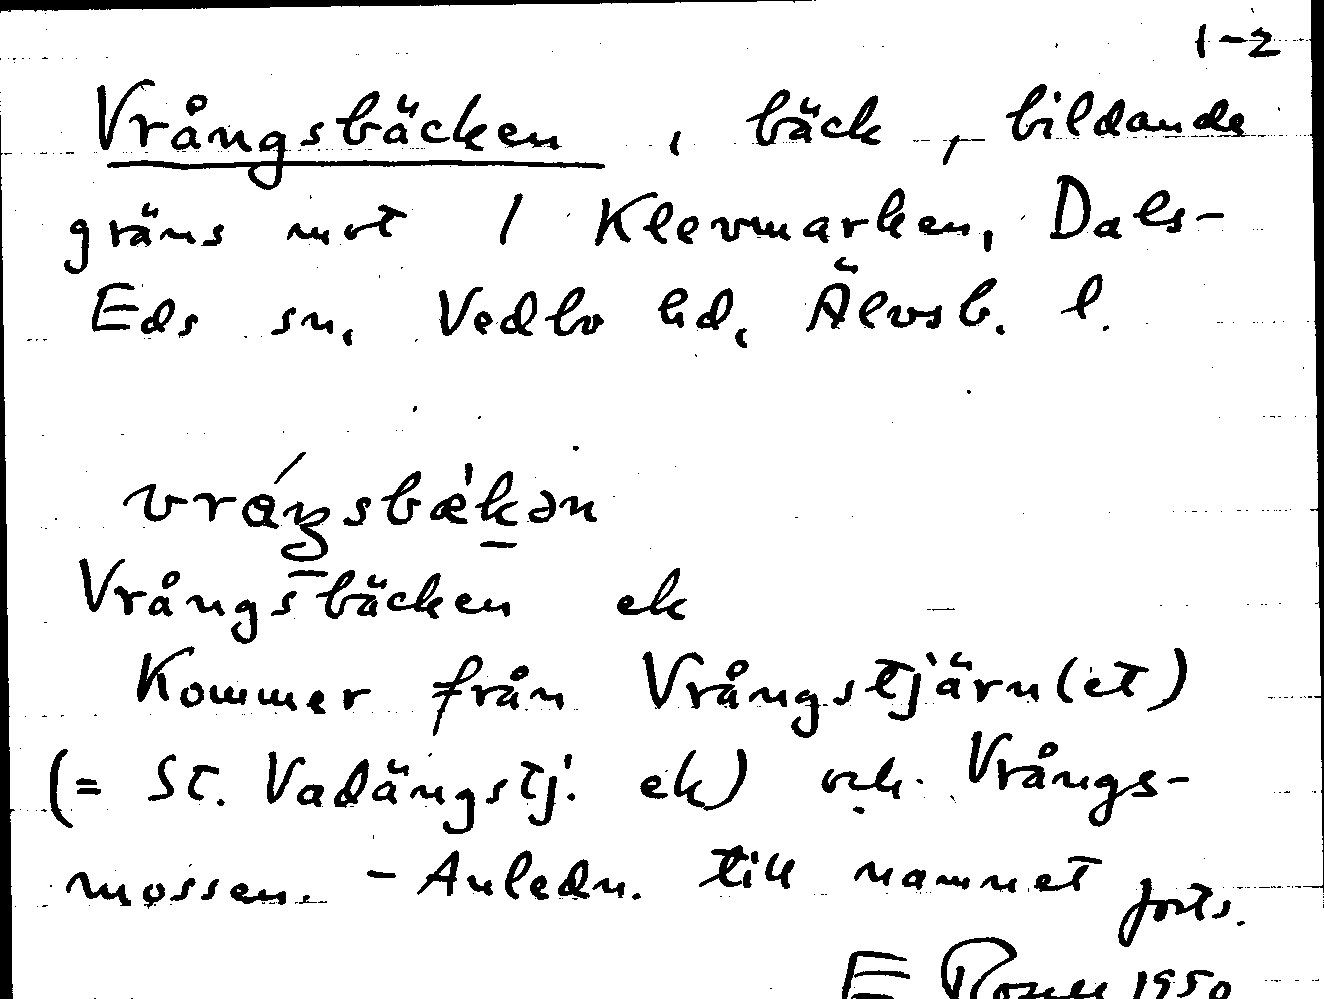 1-2
Vrångsbäcken, bäck, bildande
gräns mot / Klevmarken, Dals-
Eds sn, Vedbo hd, Älvsb. l.
vråŋsbækən
Vrångsbäcken ek
Kommer från Vrångstjärn(et)
(= St. Vadängstj. ek) och Vrångs-
mossen. - Anledn. till namnet forts.
E 1950